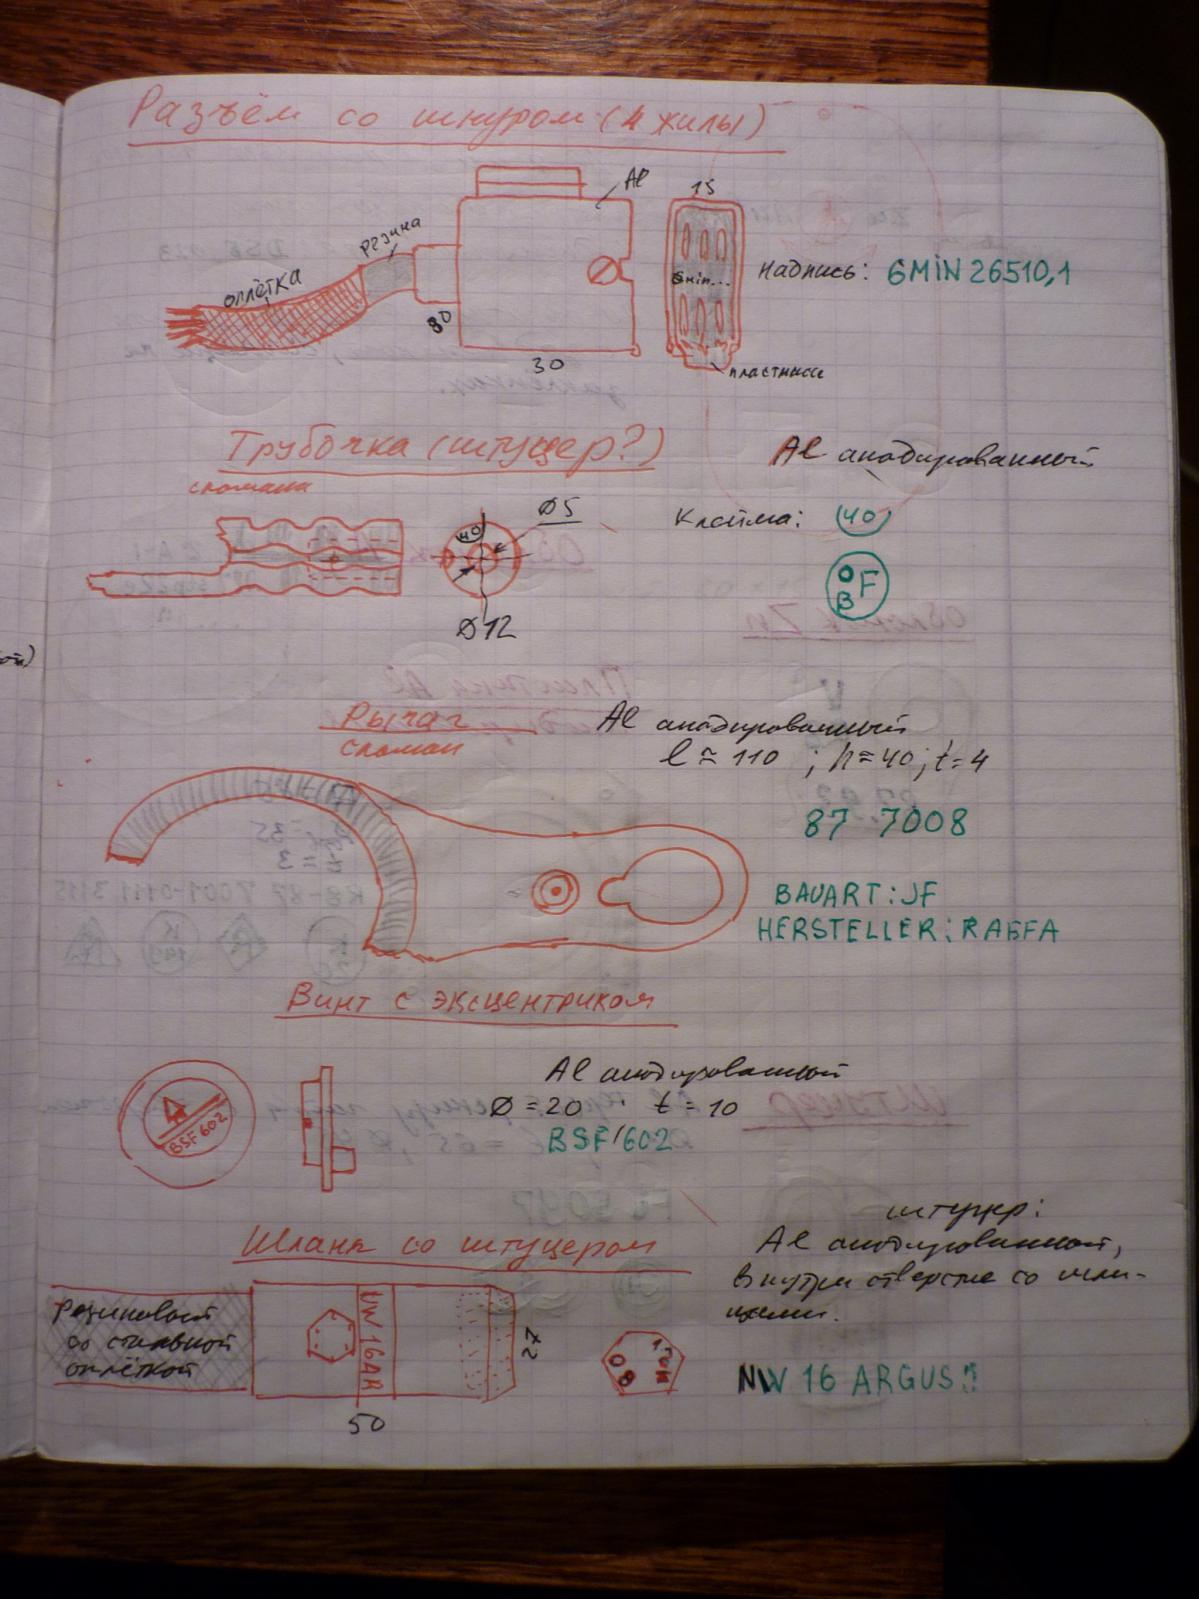 Разъём со шнуром (4 жилы)
Al
15
резина
оплётка
6min...
Надпись: 6MIN 26510,1
80
30
пластмасс
Трубочка (штуцер?)
сломана
Al анодированный
Клейма: 40
Ø5
40
O F
B
Ø12
Рычаг
сломан
Al анодированный
l ≈ 110 ; h = 40; t = 4
87 7008
BAUART: JF
HERSTELLER: RAFFA
Винт с эксцентриком
Al анодированный
Ø = 20 t = 10
BSF 602
BSF/602
Шланг со штуцером
штуцер:
Al анодированный,
внутри отверстие со шли-
цами.
резиновый
со стальной
оплёткой
UW 16AR
27
50
NW 16 ARGUS